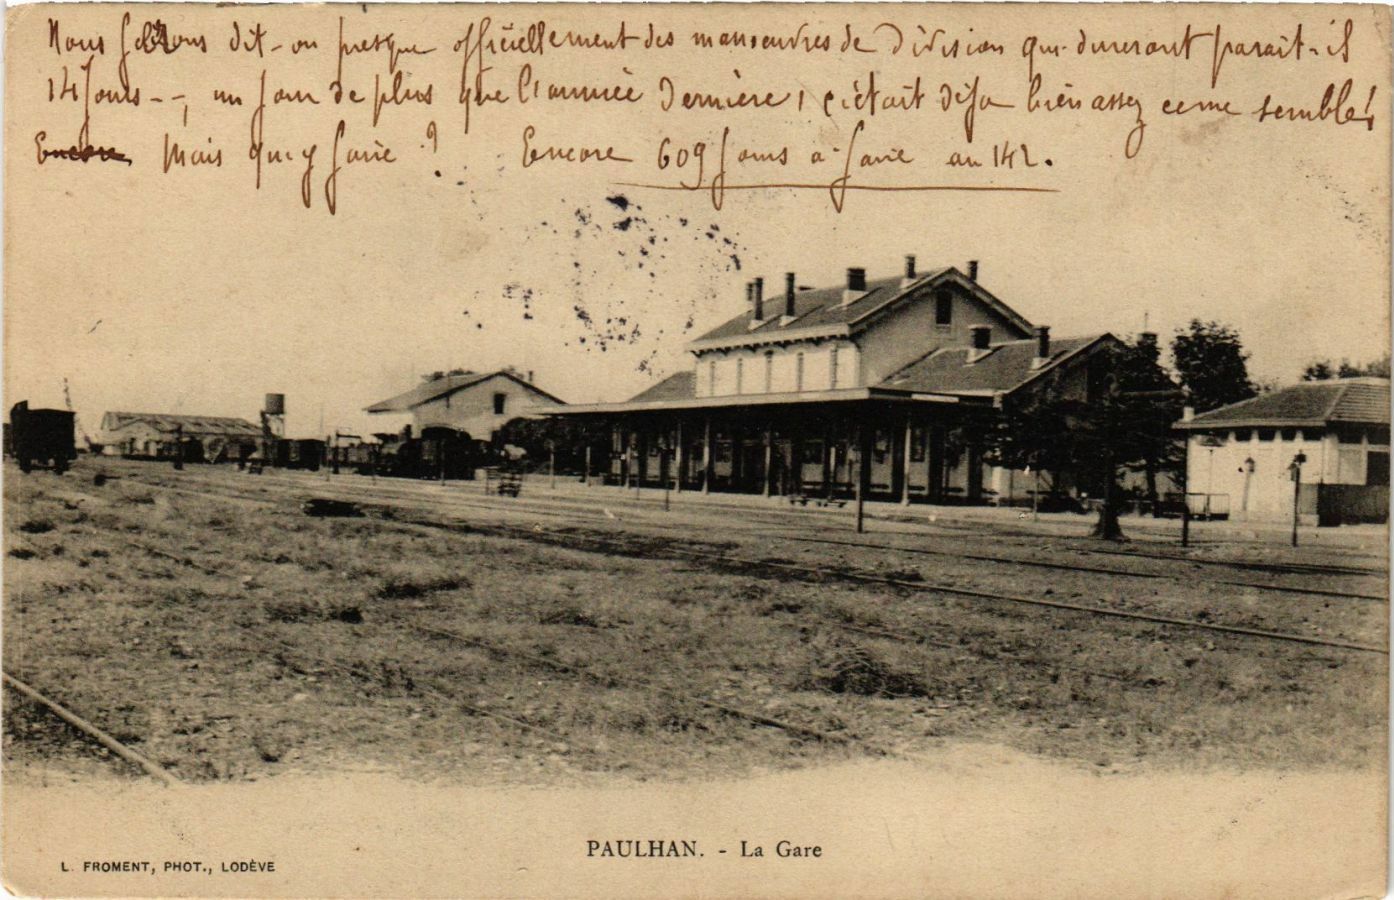 Nous ferons dit-on presque officiellement des manoeuvres de Division qui dureront parait-il
14 jours --, un jour de plus que l'année Dernière, c'était déja bien assez ce me semble!
Encore Mais qu'y faire ? Encore 609 jours à faire au 142.
PAULHAN. - La Gare
L. FROMENT, PHOT., LODÈVE